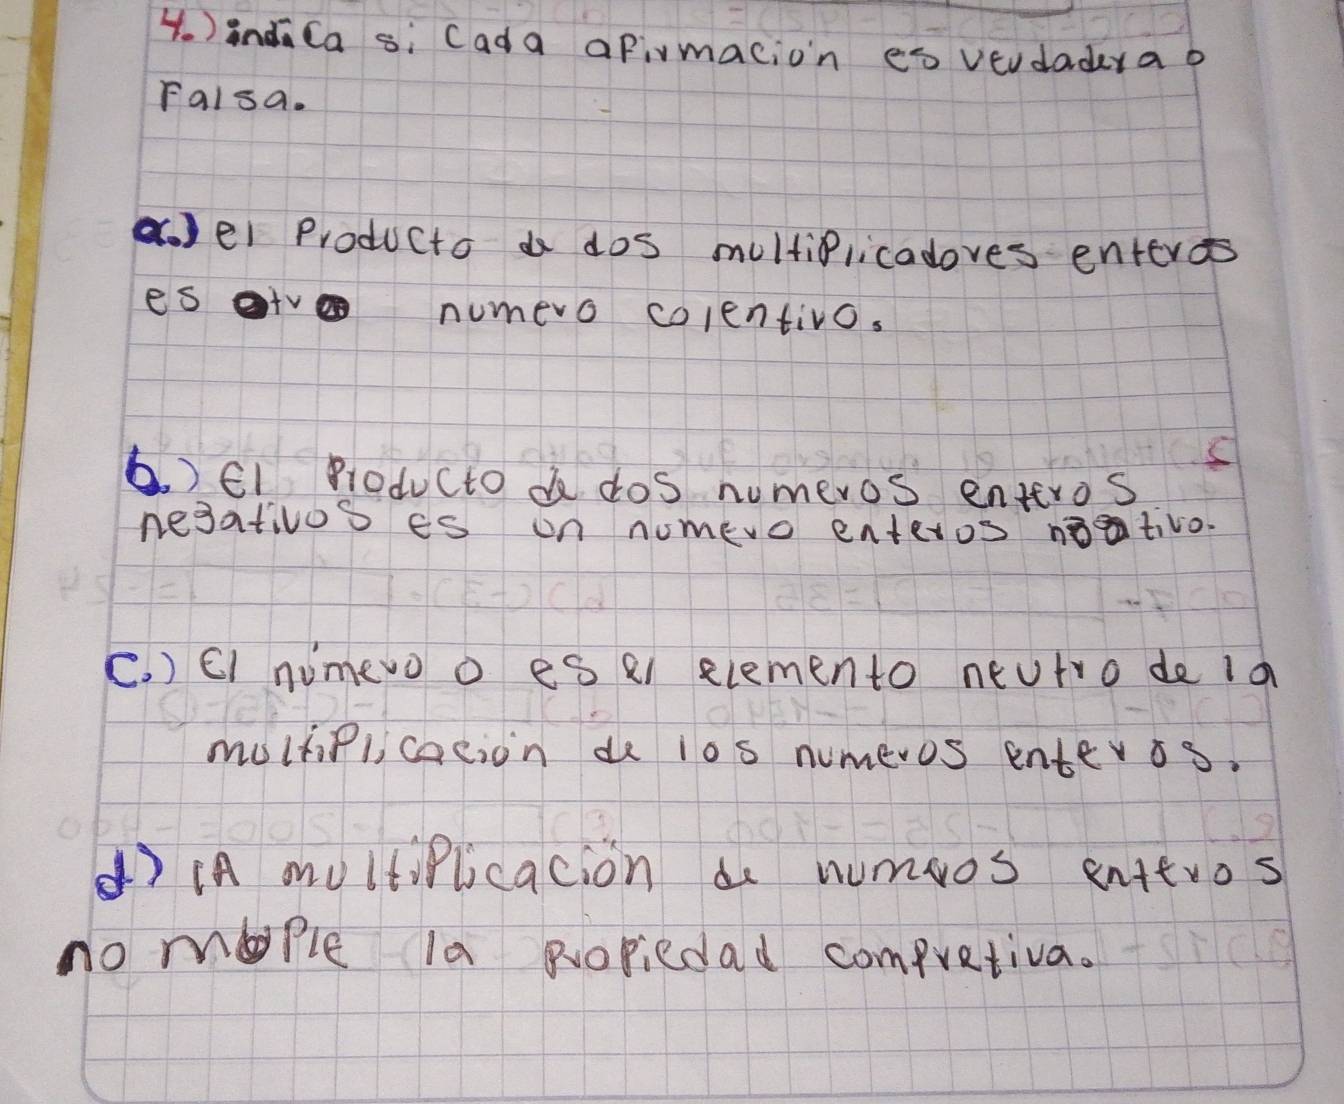 4.) indica si cada afirmación es verdadera o
Falsa.
a.) el Producto de dos multiplicadores enteros
es otro numero colentivo.
b.) El Producto de dos numeros enteros
negativos es un numero enteros
c.) El número 0 es el elemento neutro de la
multiplicación de los numeros enteros.
d) la multiplicación de numeros enteros
no la propiedad comprativa.